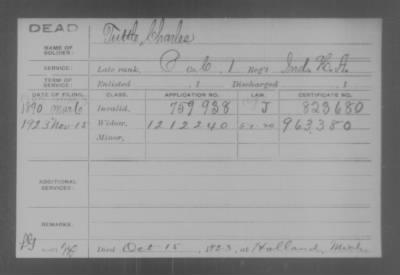 DEAD
NAME OF SOLDIER:
Tuttle, Charles
SERVICE:
Late rank, P Co. C, 1 Reg't Ind. H. A.
TERM OF SERVICE:
Enlisted , 1 Discharged , 1
DATE OF FILING. CLASS. APPLICATION NO. LAW. CERTIFICATE NO.
1890 Mar 6 Invalid, 759938 J 823680
1923 Nov 15 Widow, 1212240 5-1-20 963,380
Minor,
ADDITIONAL SERVICES:
REMARKS:
Died Oct 15, 1923, at Holland, Mich